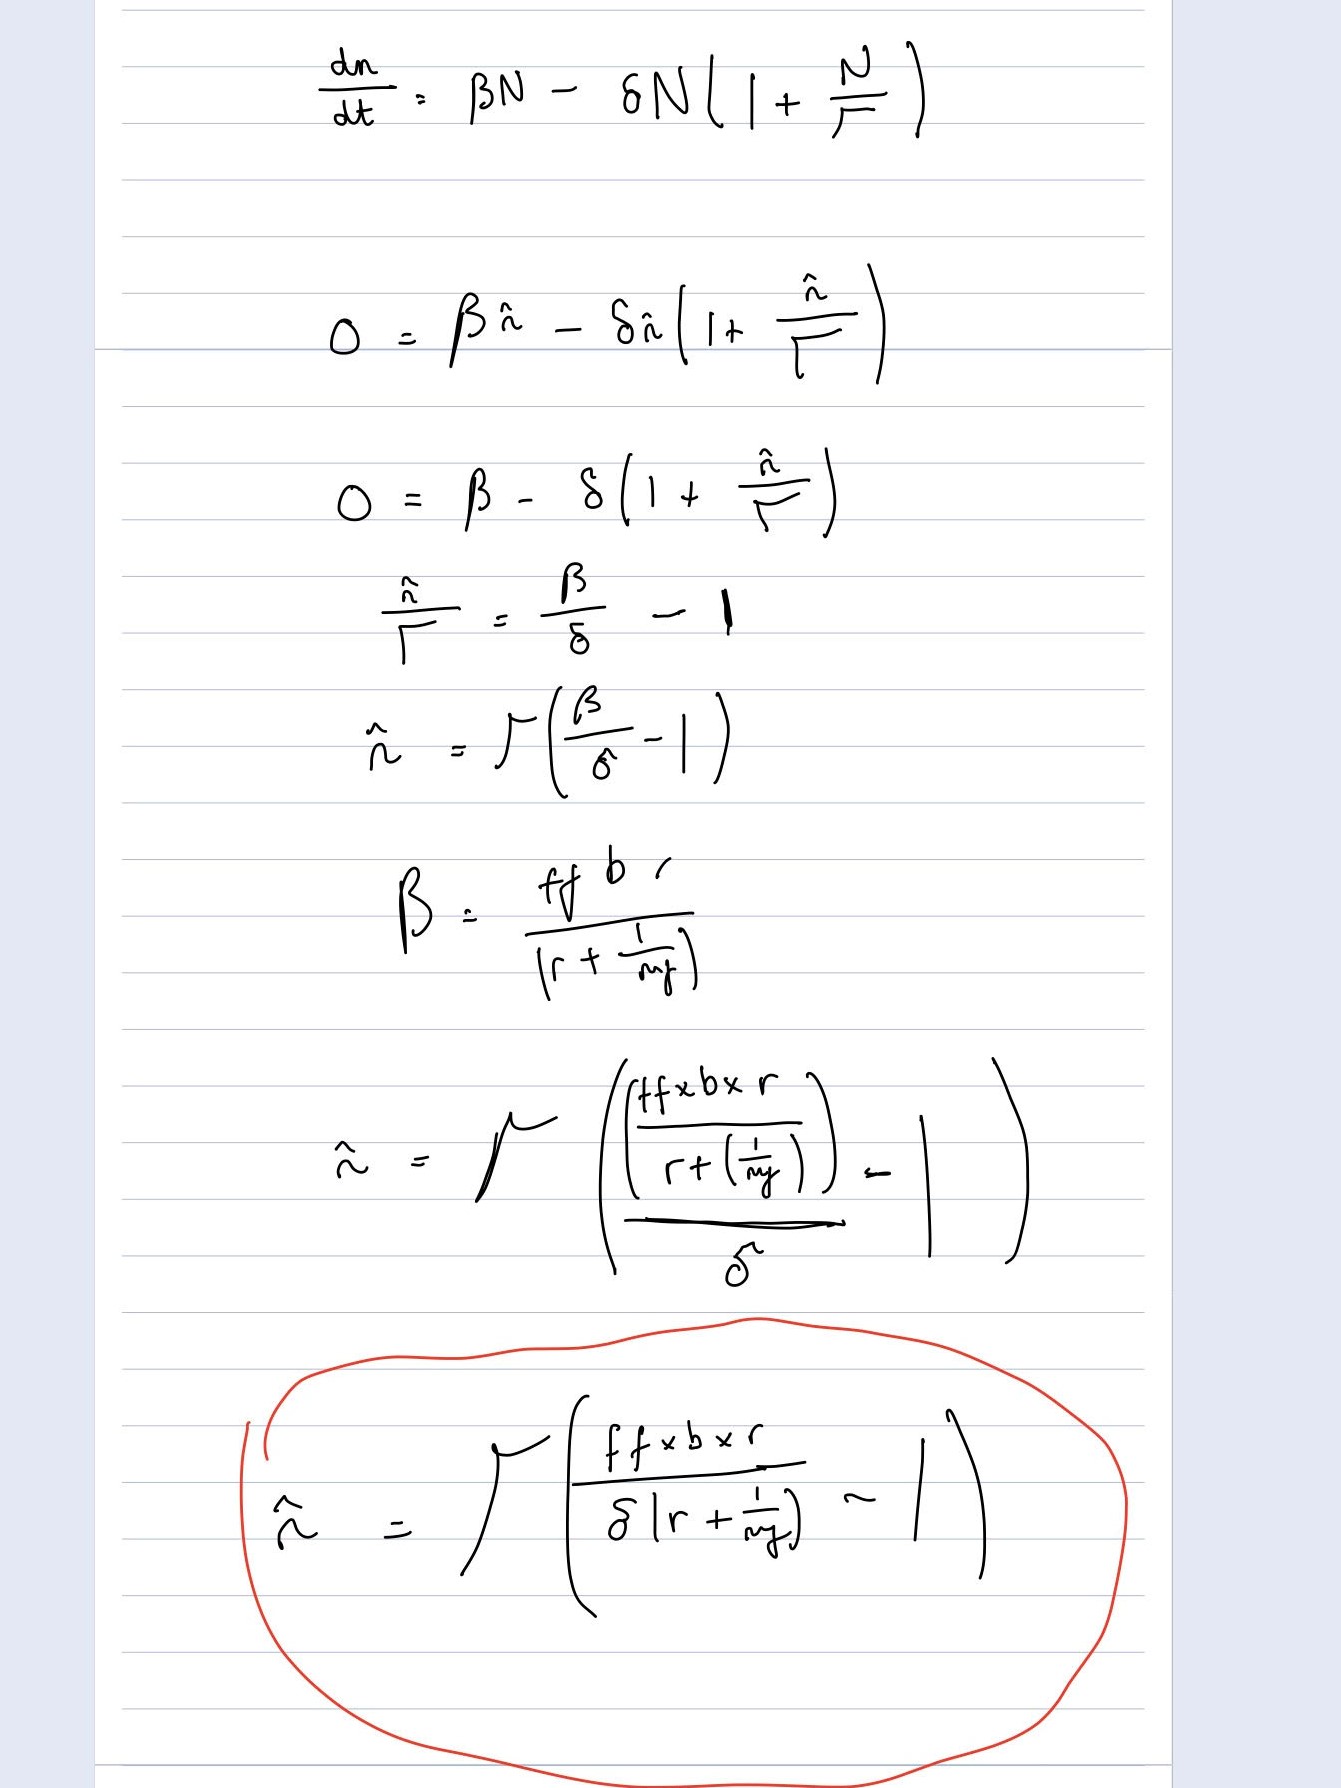 dn/dt = βN - δN(1 + N/Γ)
0 = βn̂ - δn̂(1 + n̂/Γ)
0 = β - δ(1 + n̂/Γ)
n̂/Γ = β/δ - 1
n̂ = Γ(β/δ - 1)
β = ff b r/(r + 1/my)
n̂ = Γ((ff×b×r/r+(1/my))/δ - 1)
n̂ = Γ(ff×b×r/δ(r + 1/my) - 1)